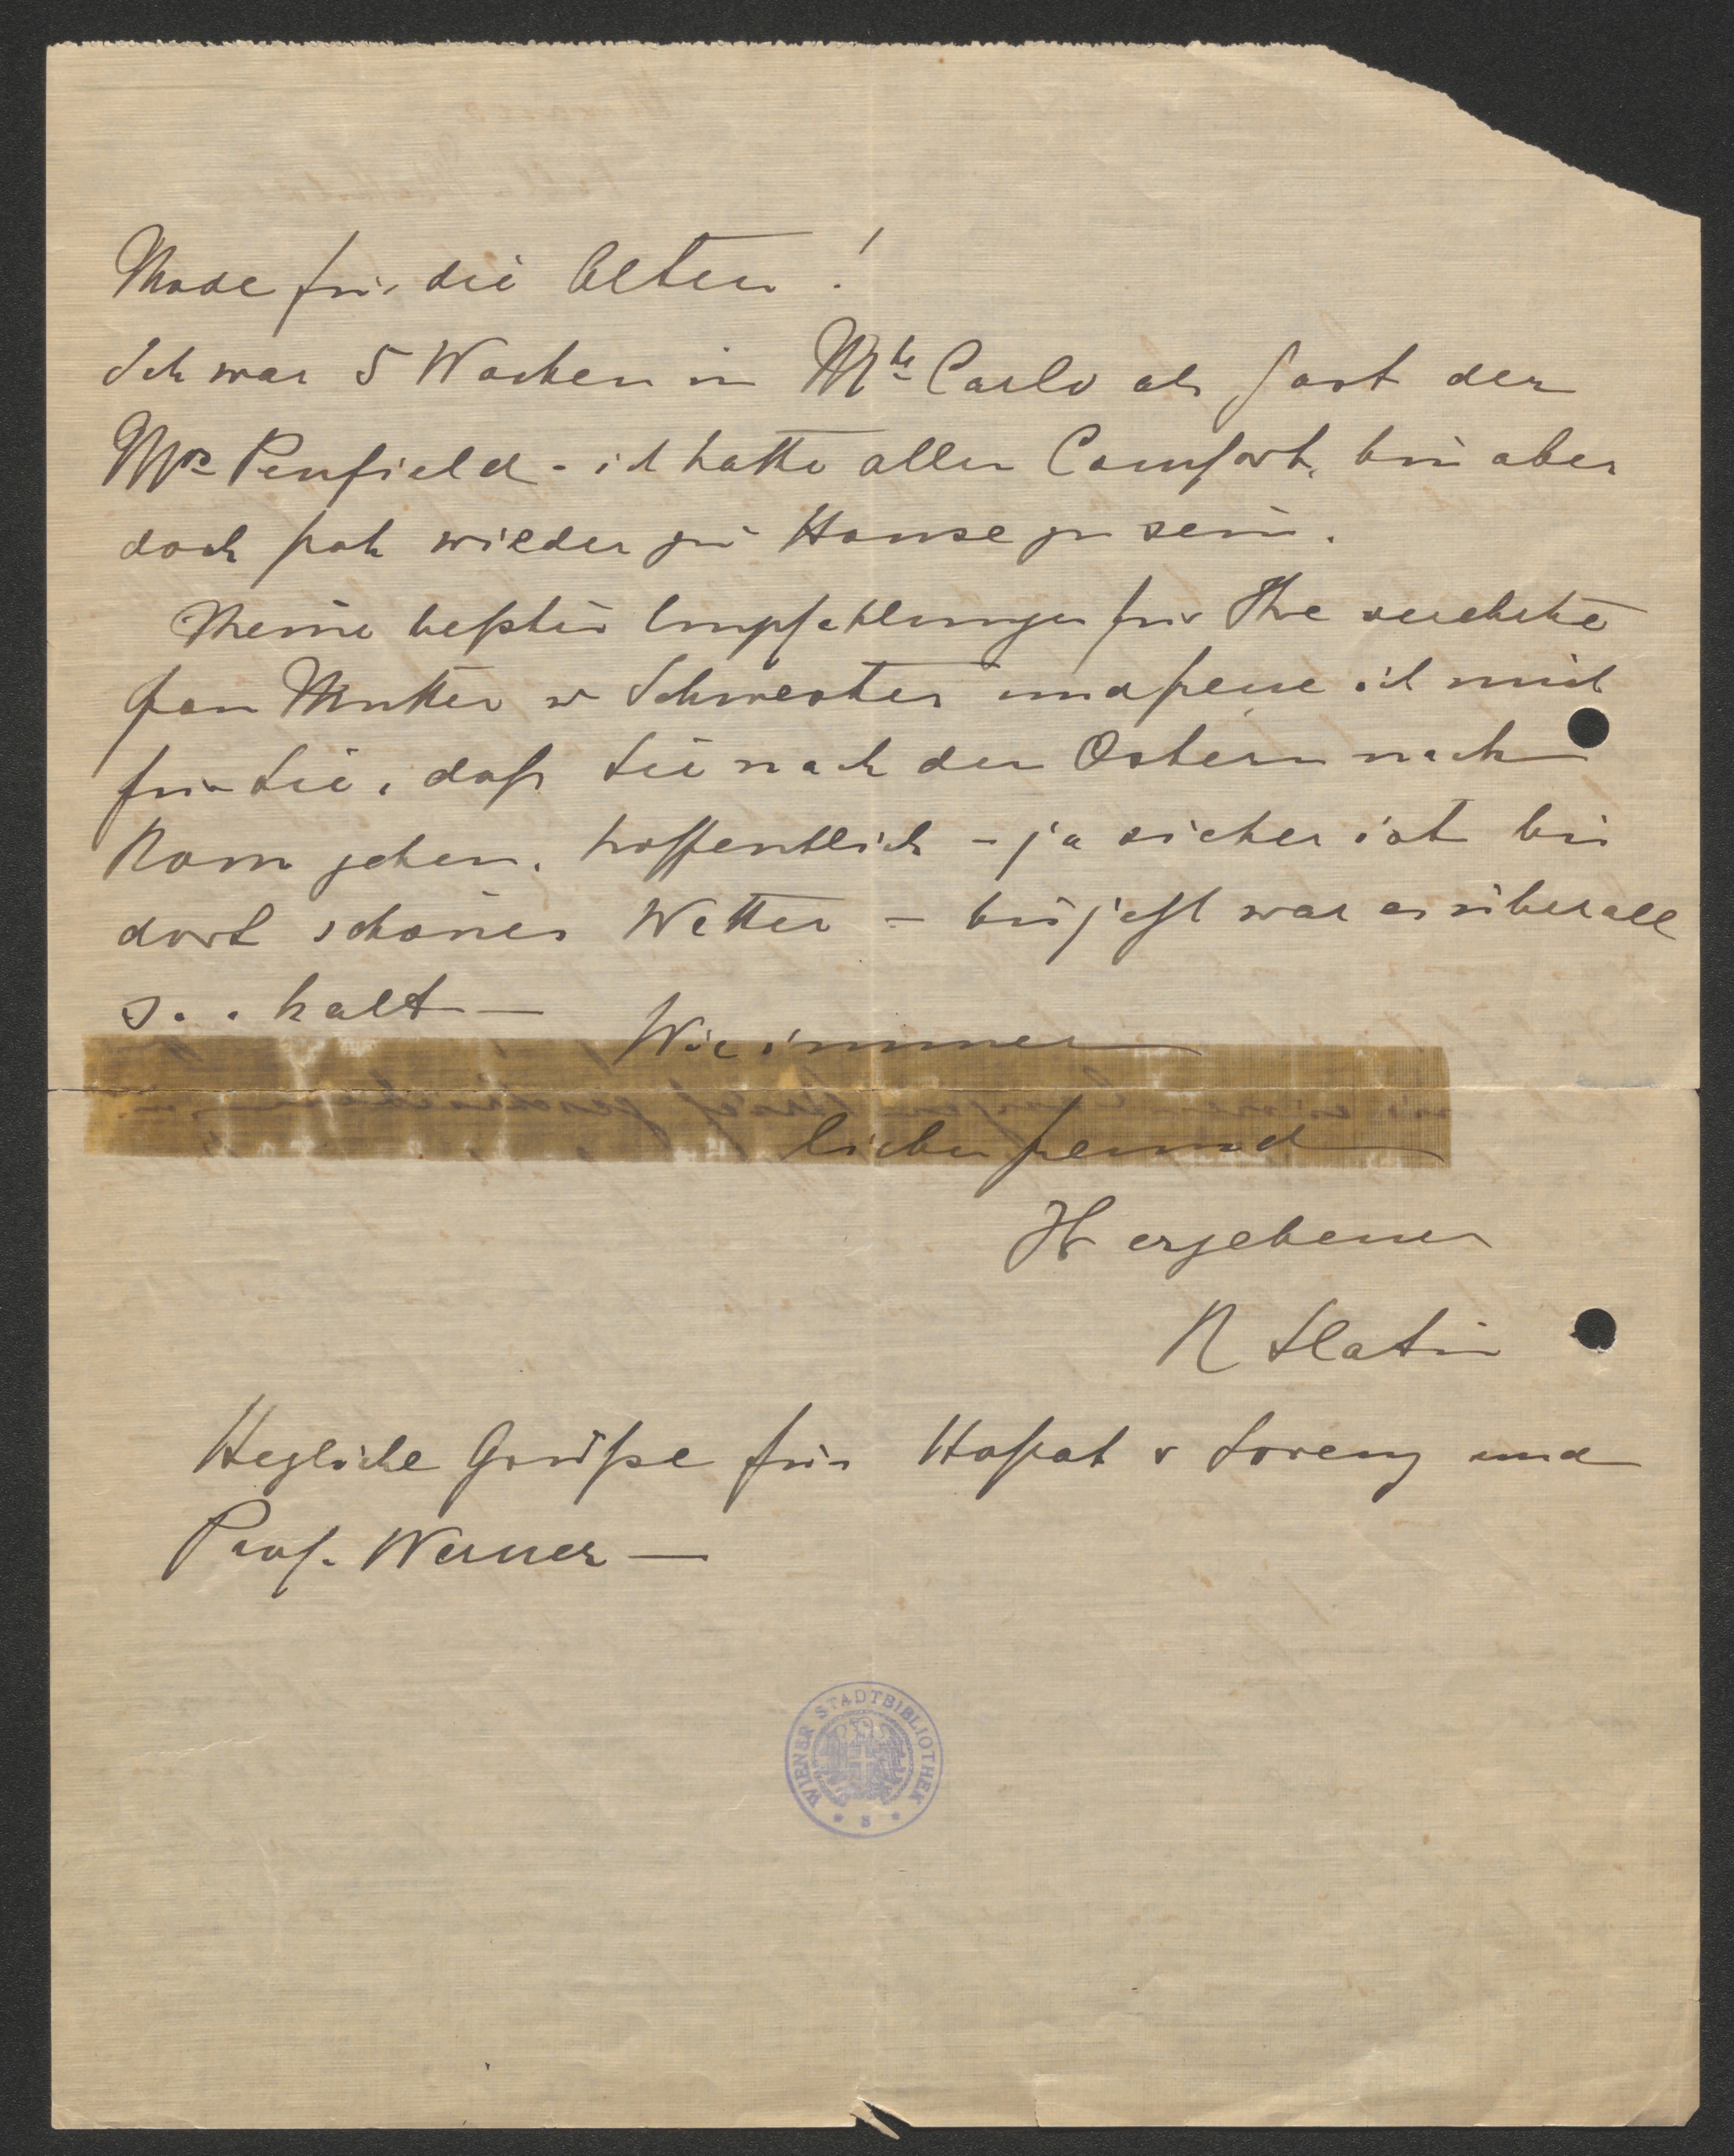 Mode für die Alten!
Ich war 5 Wochen in Mte Carlo als Gast der
Mrs Penfield - ich hatte allen Comfort, bin aber
doch froh wieder zu Hause zu sein.
Meine beßten Empfehlungen für Ihre verehrte
Frau Mutter u Schwester und freue ich mich
für Sie, daß Sie nach den Ostern nach
Rom gehen. hoffentlich - ja sicher ist bei
dort schönes Wetter - bis jetzt war es überall
s.. kalt —
Wie immer
lieber Freund
Ihr ergebener
R Slatin
Herzliche Grüße für Hofrat v Lorenz und
Prof. Werner —
WIENER STADTBIBLIOTHEK